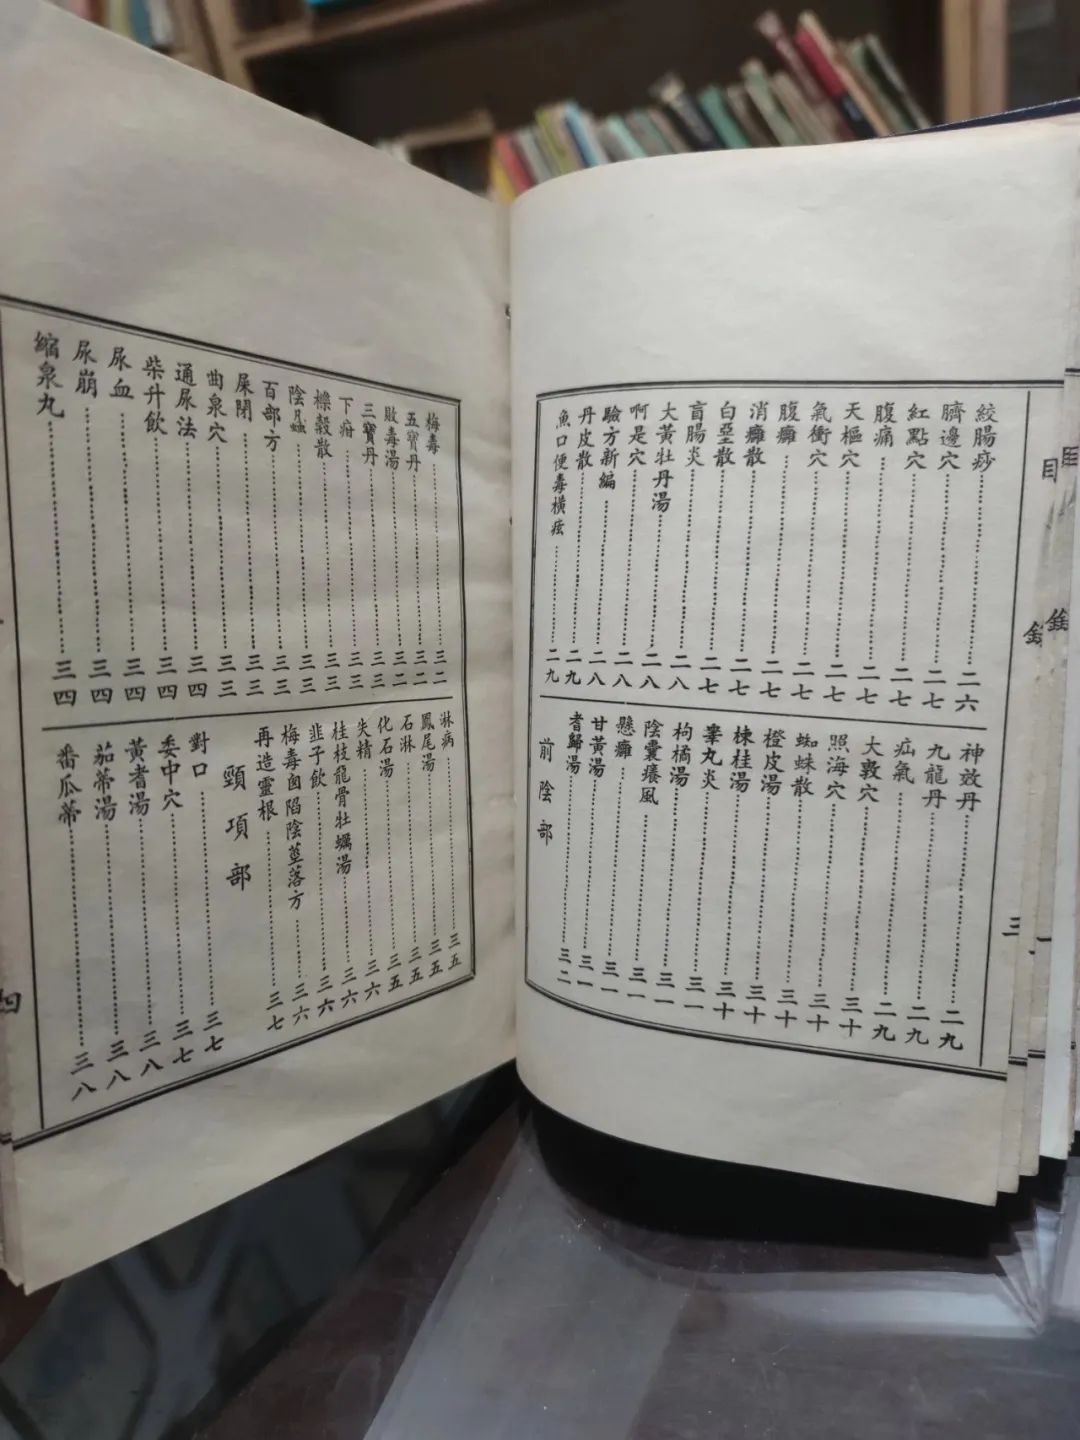 目錄
三
絞腸痧⋯⋯二六
臍邊穴⋯⋯二七
紅點穴⋯⋯二七
腹痛⋯⋯二七
天樞穴⋯⋯二七
氣衝穴⋯⋯二七
腹癰⋯⋯二七
消癰散⋯⋯二七
白堊散⋯⋯二七
盲腸炎⋯⋯二八
大黃牡丹湯⋯⋯二八
啊是穴⋯⋯二八
驗方新編⋯⋯二八
丹皮散⋯⋯二九
魚口便毒橫痃⋯⋯二九
神效丹⋯⋯二九
九龍丹⋯⋯二九
疝氣⋯⋯二九
大敦穴⋯⋯三十
照海穴⋯⋯三十
蜘蛛散⋯⋯三十
橙皮湯⋯⋯三十
棟桂湯⋯⋯三十
睾丸炎⋯⋯三一
枸橘湯⋯⋯三一
陰囊癢風⋯⋯三一
懸癰⋯⋯三一
甘黃湯⋯⋯三一
耆歸湯⋯⋯三二
前陰部
梅毒⋯⋯三二
五寶丹⋯⋯三二
敗毒湯⋯⋯三二
三寶丹⋯⋯三三
下疳⋯⋯三三
櫟殼散⋯⋯三三
陰虱⋯⋯三三
百部方⋯⋯三三
屎閉⋯⋯三三
曲泉穴⋯⋯三三
通尿法⋯⋯三四
柴升飲⋯⋯三四
尿血⋯⋯三四
尿崩⋯⋯三四
縮泉丸⋯⋯三四
淋病⋯⋯三五
鳳尾湯⋯⋯三五
石淋⋯⋯三五
化石湯⋯⋯三五
失精⋯⋯三六
桂枝龍骨牡蠣湯⋯⋯三六
韭子飲⋯⋯三六
梅毒囟陷陰莖落方⋯⋯三六
再造靈根⋯⋯三七
頸項部
對口⋯⋯三七
委中穴⋯⋯三七
黃耆湯⋯⋯三八
茄蒂湯⋯⋯三八
番瓜蒂⋯⋯三八
四